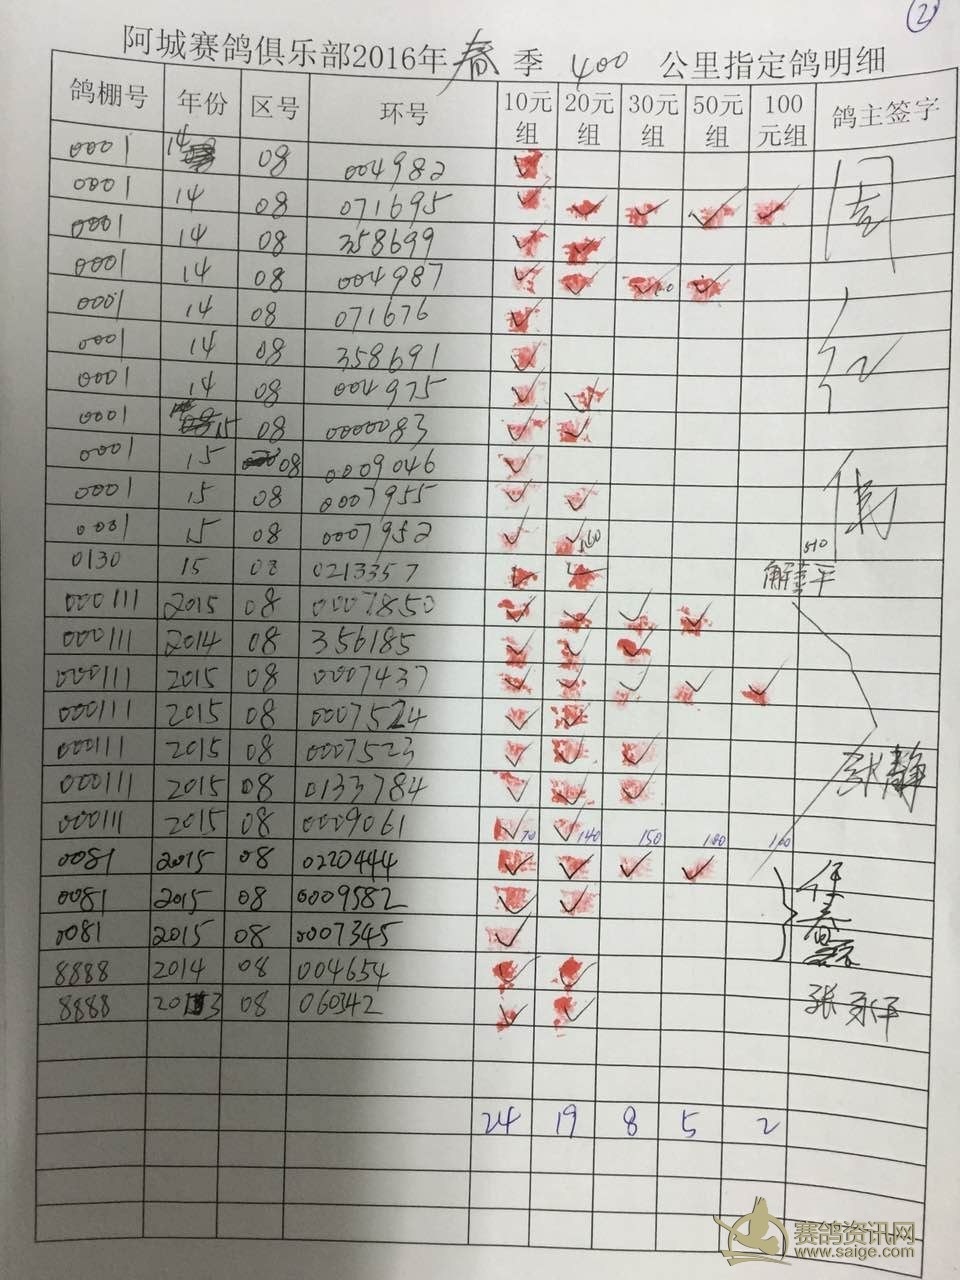 ②
阿城赛鸽俱乐部2016年春季 400 公里指定鸽明细
鸽棚号 年份 区号 环号 10元组 20元组 30元组 50元组 100元组 鸽主签字
0001 14 08 004982 ✓
0001 14 08 071695 ✓ ✓ ✓ ✓ ✓
0001 14 08 358699 ✓ ✓
0001 14 08 004987 ✓ ✓ ✓ ✓
0001 14 08 071676 ✓
0001 14 08 358691 ✓
0001 14 08 004975 ✓ ✓
0001 15 08 0000083 ✓ ✓
0001 15 08 0009046 ✓
0001 15 08 0007955 ✓ ✓
0001 15 08 0007952 ✓ ✓
0130 15 08 0213357 ✓ ✓
000111 2015 08 0007850 ✓ ✓ ✓ ✓
000111 2014 08 356185 ✓ ✓ ✓
000111 2015 08 0007437 ✓ ✓ ✓ ✓ ✓
000111 2015 08 0007524 ✓ ✓
000111 2015 08 0007523 ✓ ✓ ✓
000111 2015 08 0133784 ✓ ✓ ✓ 张静
000111 2015 08 0009061 ✓ 70 ✓ 140 150 100 100
0081 2015 08 0220444 ✓ ✓ ✓ ✓
0081 2015 08 0009582 ✓ ✓
0081 2015 08 0007345 ✓
8888 2014 08 004654 ✓ ✓
8888 2013 08 060342 ✓ ✓
24 19 8 5 2
赛鸽资讯网
www.saige.com